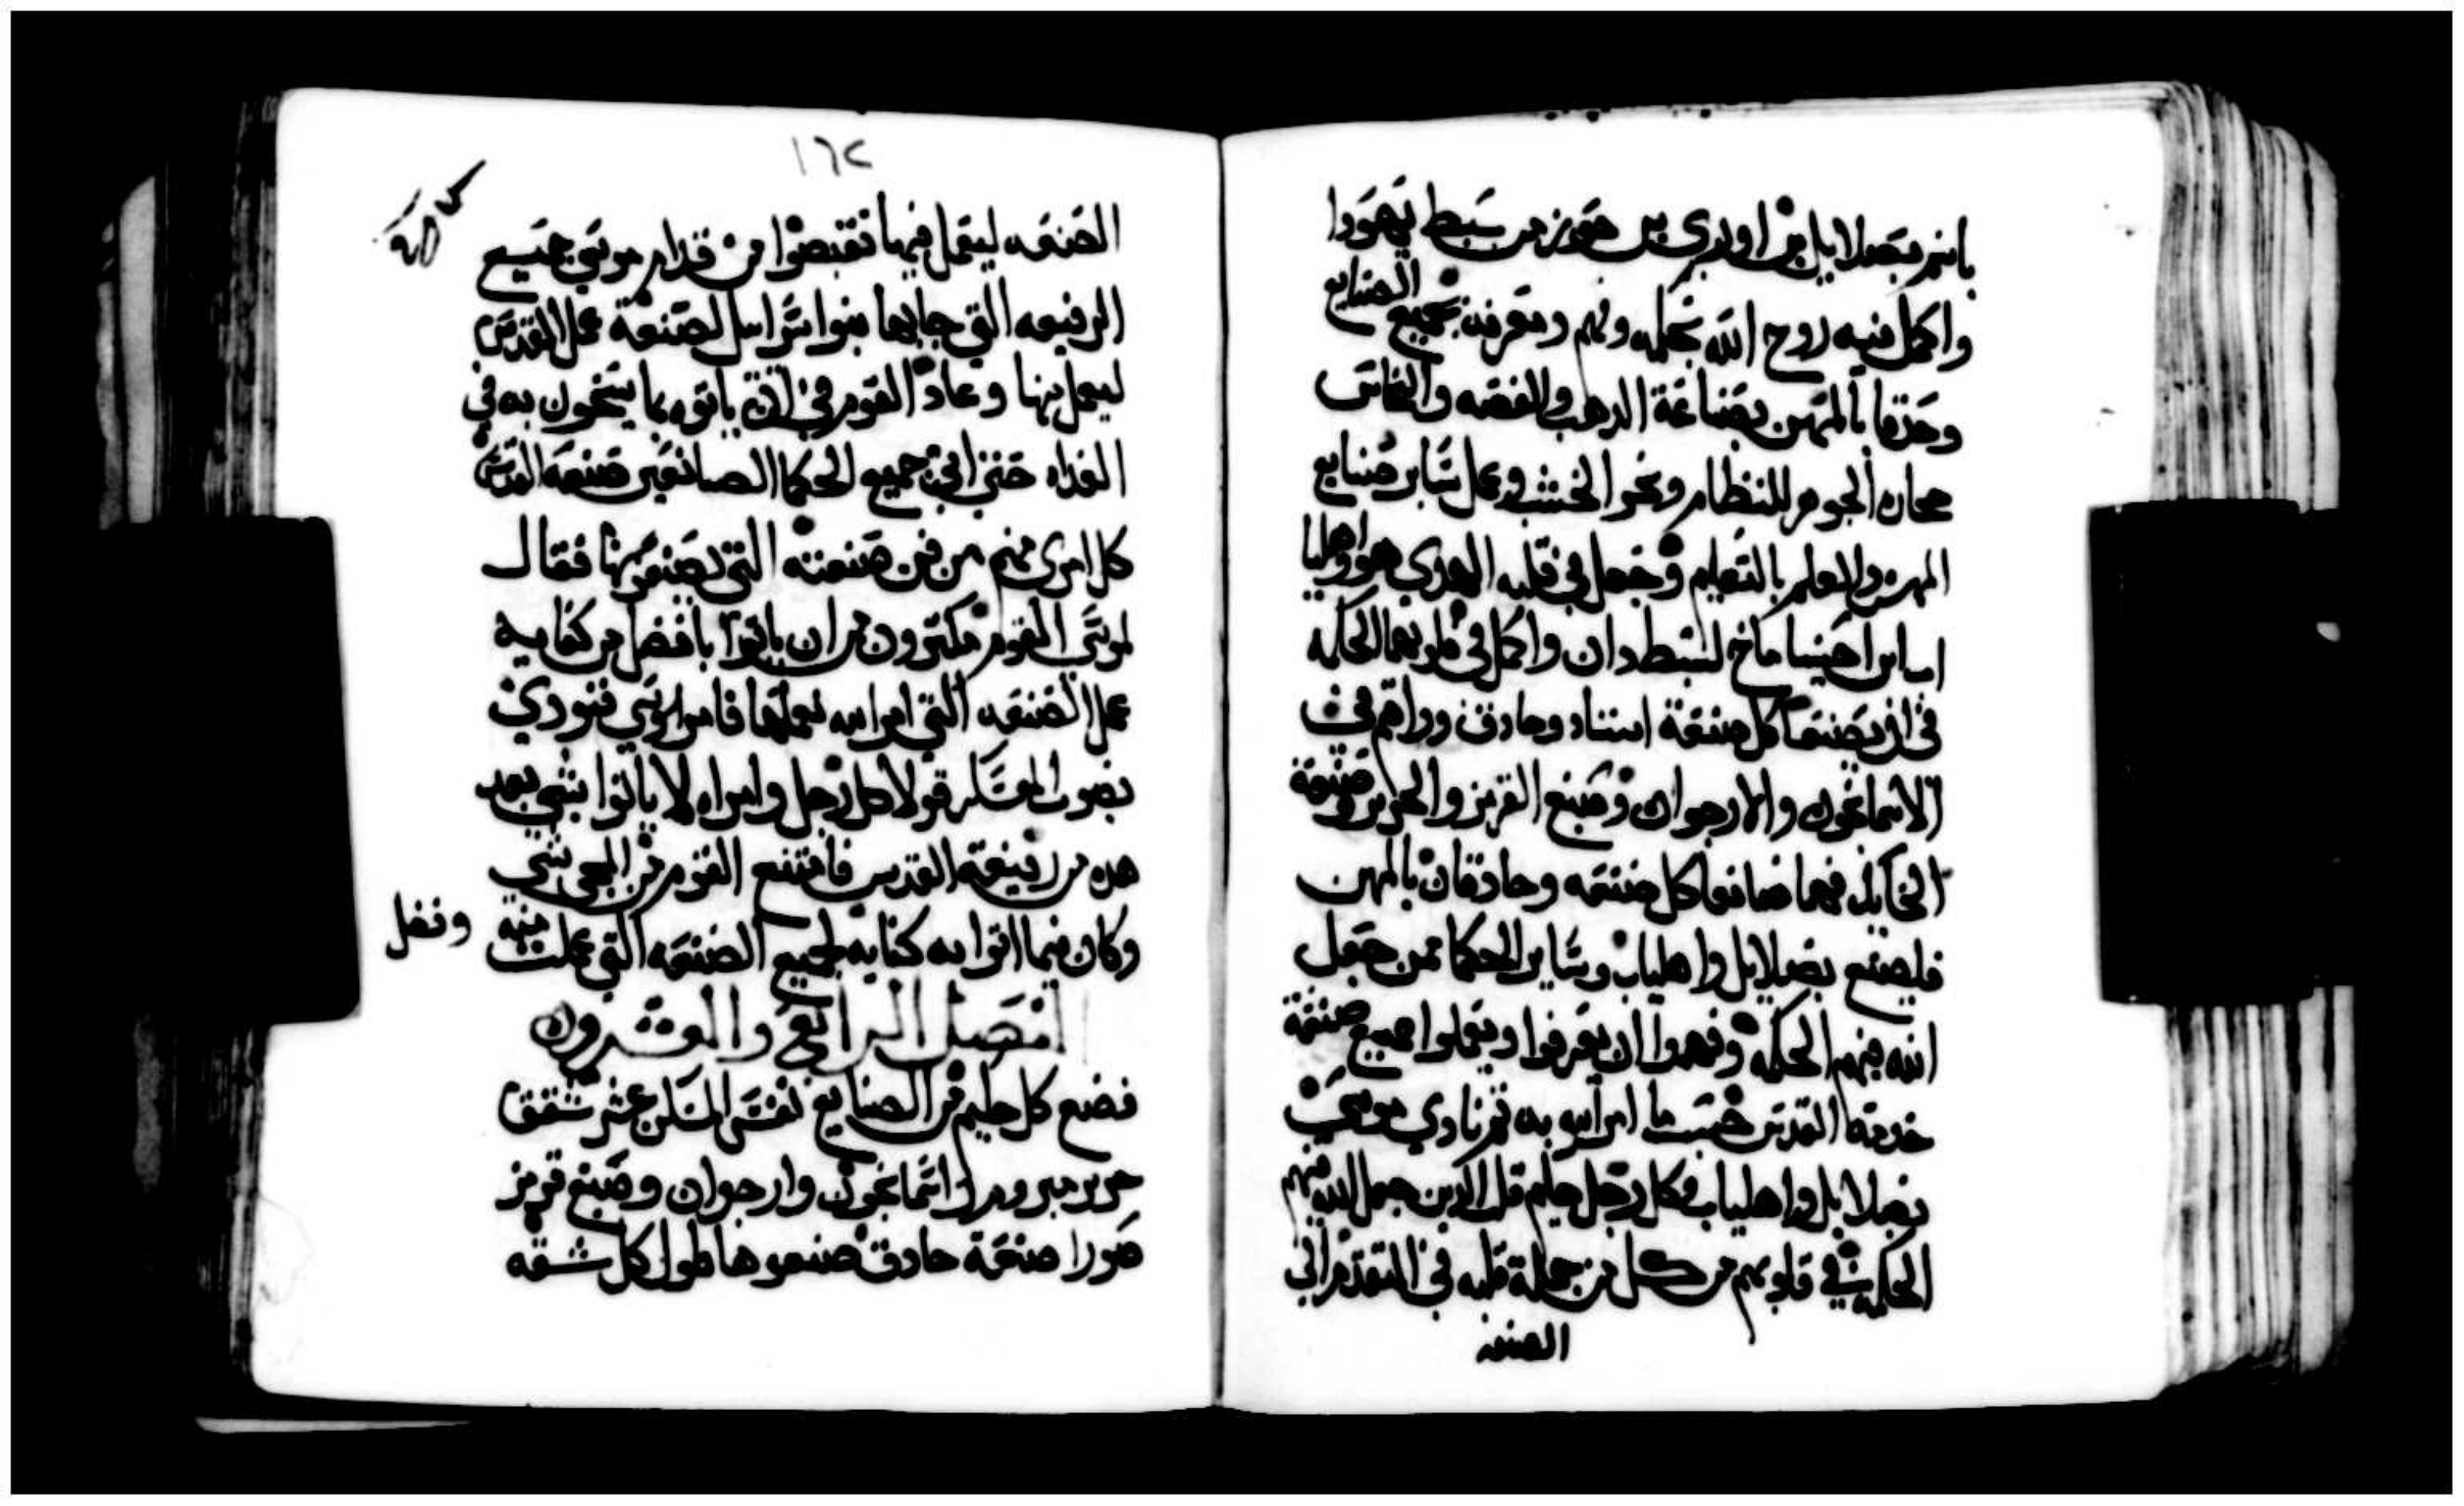 باسم بصلاييل بن اوري بن حور من سبط يهودا
واكمل فيه روح الله بحكمه وفهم ومعرفه بجميع الصنايع
وحذقا بالمهن بصناعة الدهب والفضه والنحاس
حجاره الجوهر للنظام ونجر الخشب وعمل ساير صنايع
المهن والعلم بالتعليم وجعل في قلبه الهدي هو واهليا
ابن احيساماخ لسبط دان واكمل في قلوبهما الحكمه
في ان يصنعا كل صنعة استاد وحادق وراقم في
الاسمانجون والارجوان وصبغ القرمز والحرير وصنعة
فهما صانعوا كل صنعه وحادقان بالمهن
فليصنع بصلاييل واهلياب وساير الحكما ممن جعل
الله فيهم الحكمه وفهموا ان يعرفوا ويعملوا جميع صنعة
خدمة القدس حسب ما امر الله به ثم نادي موسي
بصلاييل واهلياب وكل رجل حليم قلب الدين جعل الله فيهم
الحكمه في قلوبهم من كل من حمله قلبه في التقدم الي
الصنعه
١٦٢
الصنعه ليعمل فيها فقبضوا من قدام موسي جميع
الرفيعه التي جابها بنوا اسراييل لصنعة عمل القدس
ليعمل بها وعاد القوم في ان ياتوه بما يسخون به في
الغداه حتي اتي جميع الحكما الصانعين صنعه القدس
كل امري منهم من فن صنعته التي يصنع بها فقال
لموسي القوم مكترون من ان ياتوا بافضل من كفاية
عمل الصنعه التي امر الله بعملها فامر موسي فنودي
بصوت المعسكر قولا كل رجل وامراه لا ياتوا بشي بعد
هده من رفيعة القدس فامتنع القوم من المجي بشي
وكان فيما اتوا به كفايه لجميع الصنعه التي عملت منه
وفضل
الفصل الرابع والعشرون
فصنع كل حليم من الصنايع نفس المسكن عشر شقق
حرير مبروم اسمانجون وارجوان وصبغ قرمز
صورا صنعة حادق صنعوها طول كل شقه